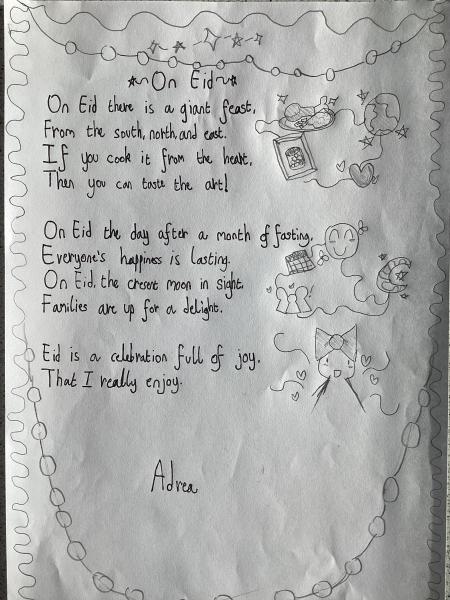 On Eid
On Eid there is a giant feast,
From the south, north, and east.
If you cook it from the heart,
Then you can taste the art!
On Eid the day after a month of fasting,
Everyone's happiness is lasting.
On Eid, the cresent moon in sight.
Families are up for a delight.
Eid is a celebration full of joy.
That I really enjoy.
Adrea